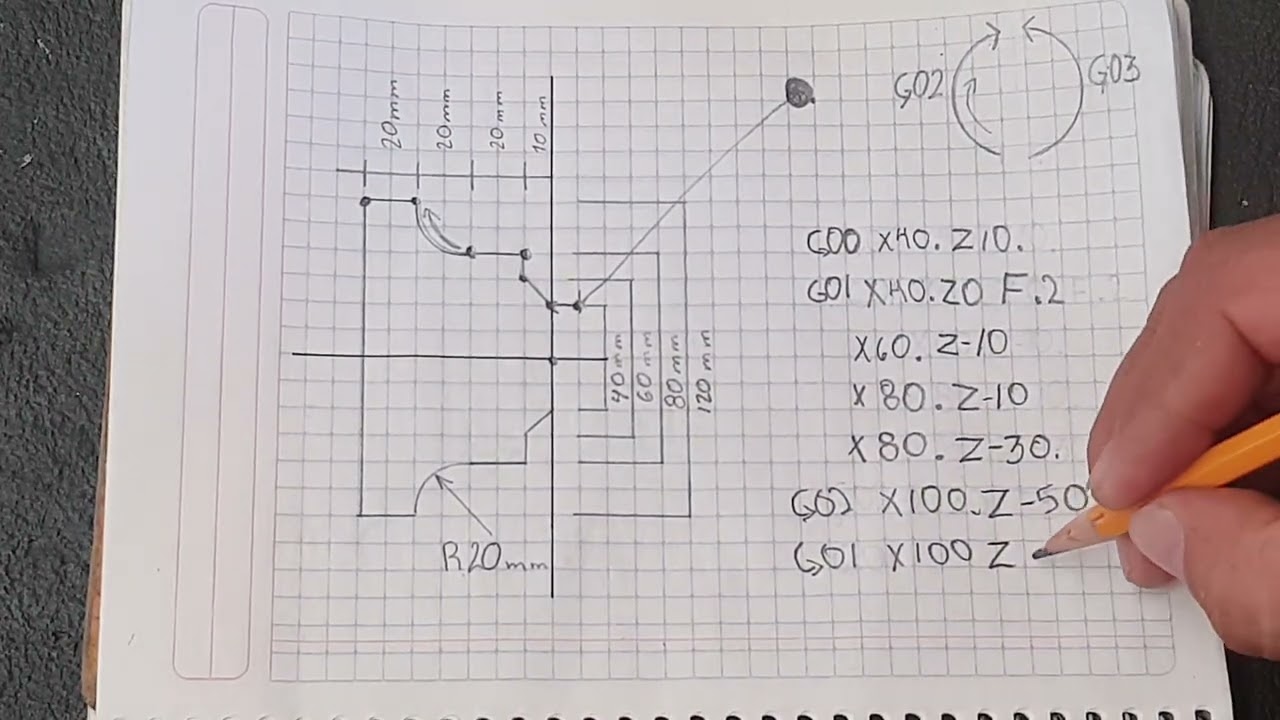 20mm
20mm
20mm
10mm
G02
G03
40mm
60mm
80mm
120mm
R20mm
G00 X40. Z10.
G01 X40. Z0 F.2
X60. Z-10
X80. Z-10
X80. Z-30.
G02 X100. Z-50
G01 X100 Z